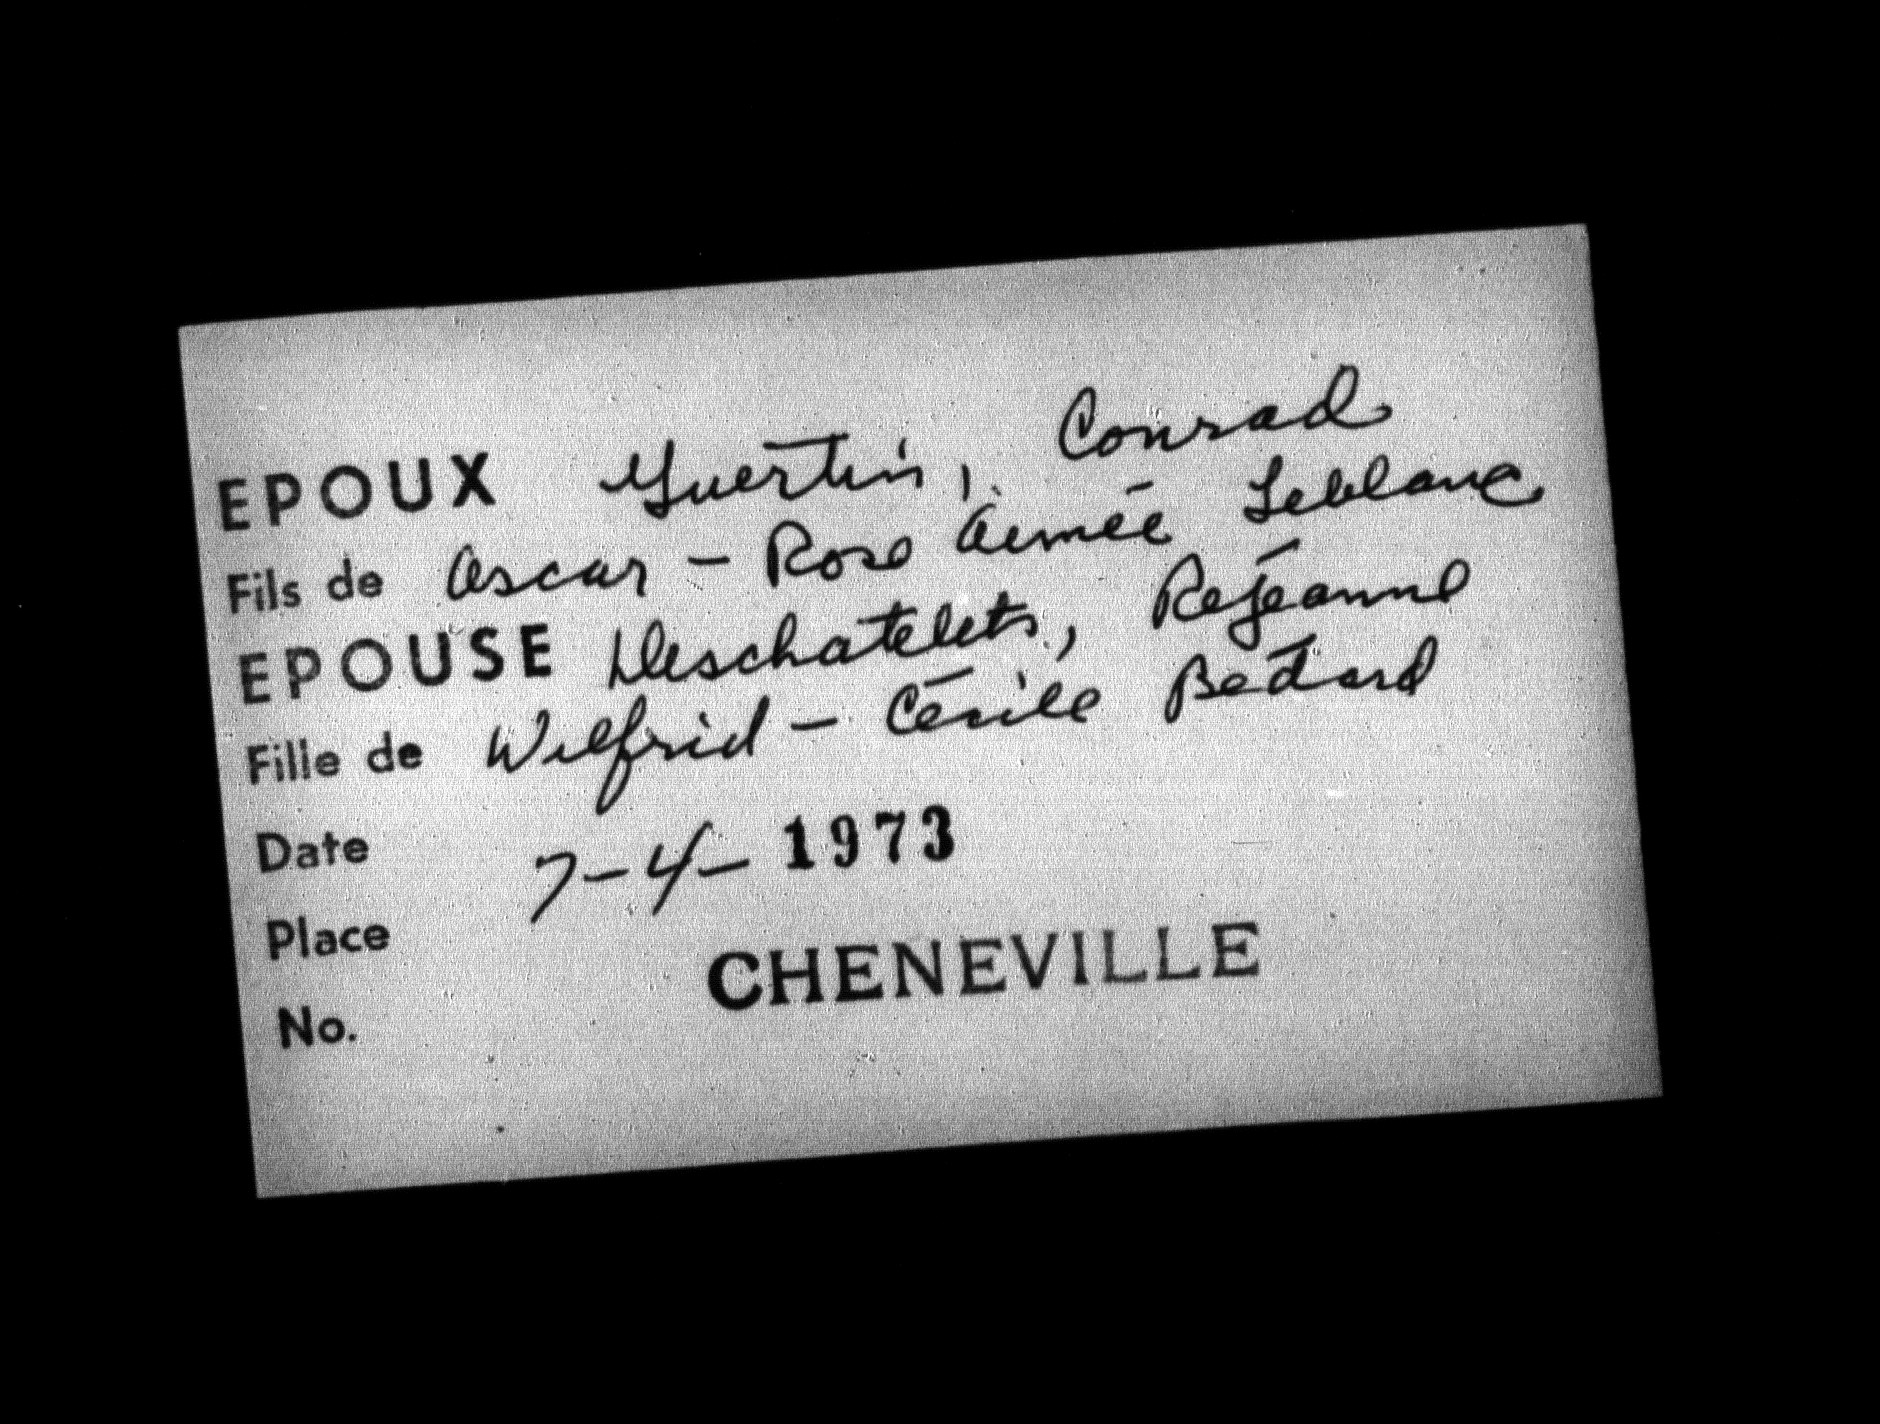 EPOUX Guertin, Conrad
Fils de Oscar - Rose Aimée Leblanc
EPOUSE Deschatelets, Rejeanne
Fille de Wilfrid - Cécile Bedard
Date 7-4-1973
Place CHENEVILLE
No.